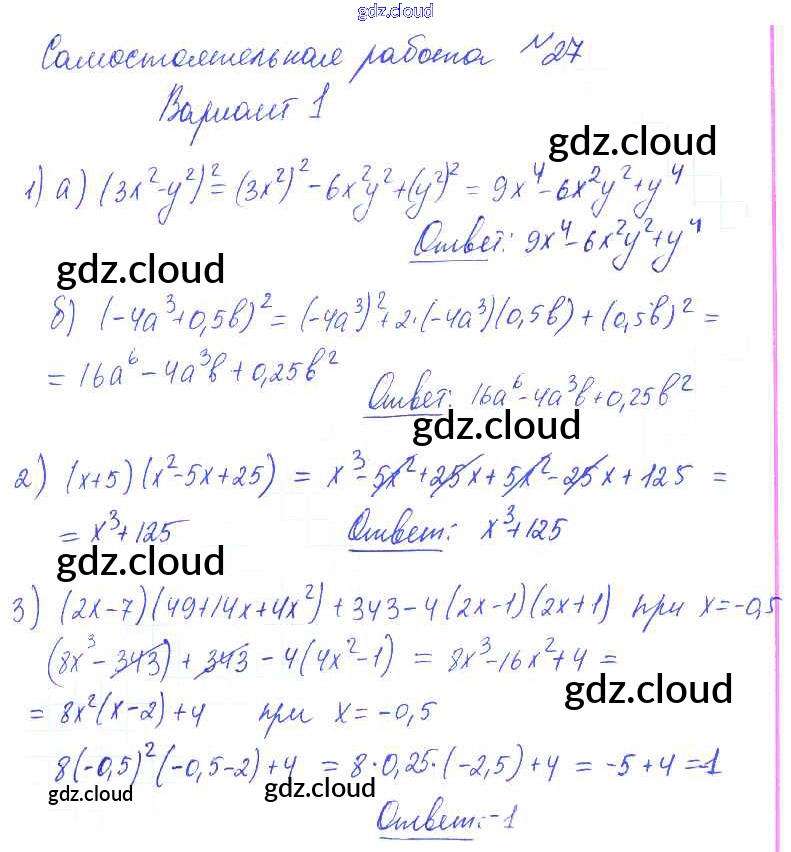 gdz.cloud
Самостоятельная работа №27
Вариант 1
gdz.cloud
1) а) (3x²-y²)²=(3x²)²-6x²y²+(y²)² = 9x⁴-6x²y²+y⁴
Ответ: 9x⁴-6x²y²+y⁴
gdz.cloud
б) (-4a³+0,5b)²=(-4a³)²+2·(-4a³)(0,5b)+(0,5b)²=
=16a⁶-4a³b+0,25b²
Ответ: 16a⁶-4a³b+0,25b²
gdz.cloud
2) (x+5)(x²-5x+25) = x³-5x²+25x+5x²-25x+125 =
= x³+125 Ответ: x³+125
gdz.cloud
3) (2x-7)(49+14x+4x²)+343-4(2x-1)(2x+1) при x=-0,5
(8x³-343)+343-4(4x²-1) = 8x³-16x²+4 =
gdz.cloud
= 8x²(x-2)+4 при x=-0,5
8(-0,5)²(-0,5-2)+4 = 8·0,25·(-2,5)+4 = -5+4=-1
gdz.cloud gdz.cloud
Ответ: -1